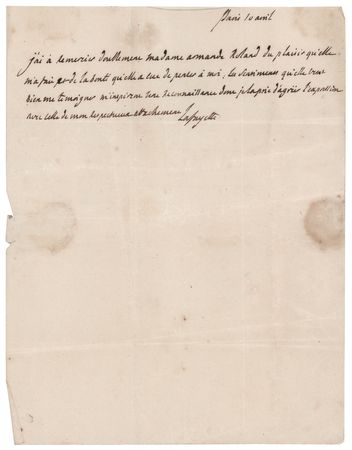 Paris 10 avril
j'ai à remercier doublement madame armande Roland du plaisir qu'elle
m'a fait et de la bonté qu'elle a eue de penser à moi, les sentimens qu'elle veut
bien me témoigner m'inspirent une reconnaissance dont je la prie d'agréer l'expression
avec celle de mon respectueux attachement
Lafayette